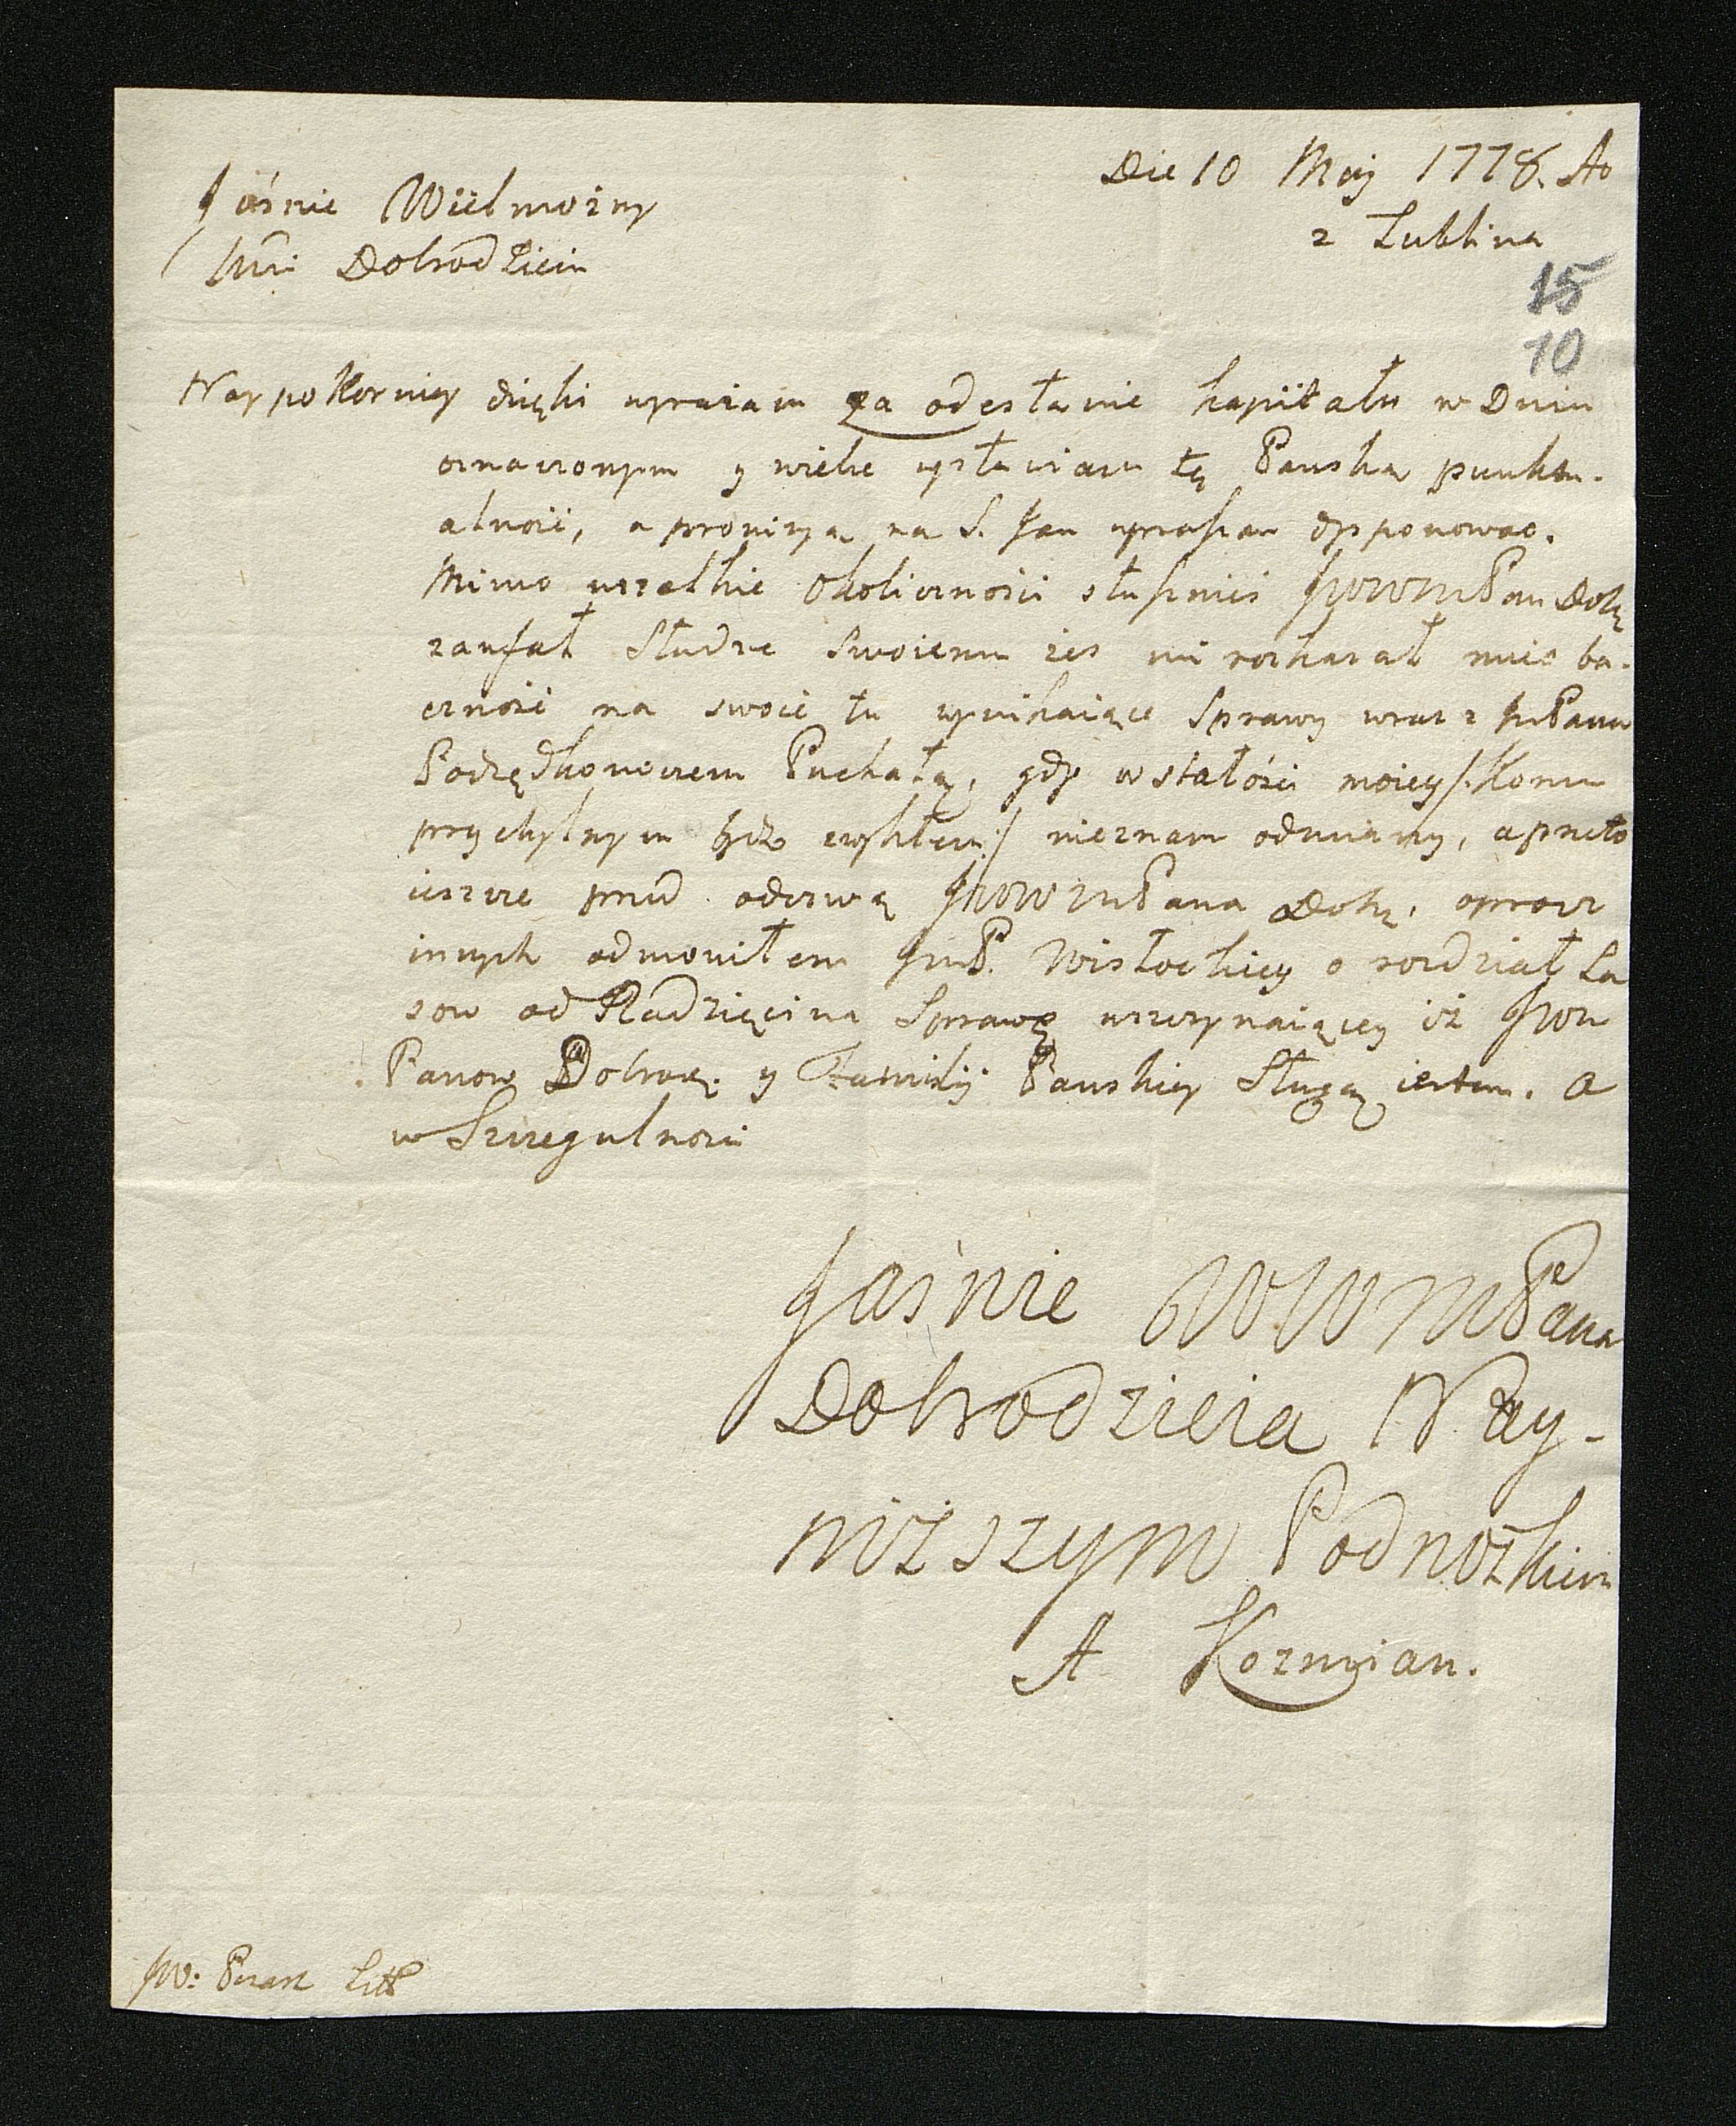 Die 10 Maij 1778. Ao
z Lublina
Jaśnie Wielmożny
Mći Dobrodzieiu
15
10
Naypokorniey dzięki wyrażam za odesłanie kapitału w Dniu
oznaczonym y wielce wysławiam tę Pańską punktu-
alność, a prowizyą na S. Jan upraszam dysponować.
Mimo wszelkie okoliczności słusznieś JWWMPan Dobr
zaufał Słudze Swoiemu żeś mi rozkazał mieć ba-
czność na swoie tu wynikaiące Sprawy wraz z JmPanem
Podsędkowiczem Puchałą, gdy w stałości moiey /: komu
przychylnym bydź zwykłem :/ nieznam odmiany, a przeto
ieszcze przed odezwą JWWMPana Dobr, oprocz
innych odmowiłem JmP. Wisłockiey o rozdział La
sow od Radzięcina Sprawę wszczynaiącey iż JWW
Panow Dobrod. y Familij Pańskiey Sługą iestem. a
w Szczegulności
Jaśnie WWMPana
Dobrodzieia Nay-
niższym Podnóżkiem
A Kozmian.
JW: